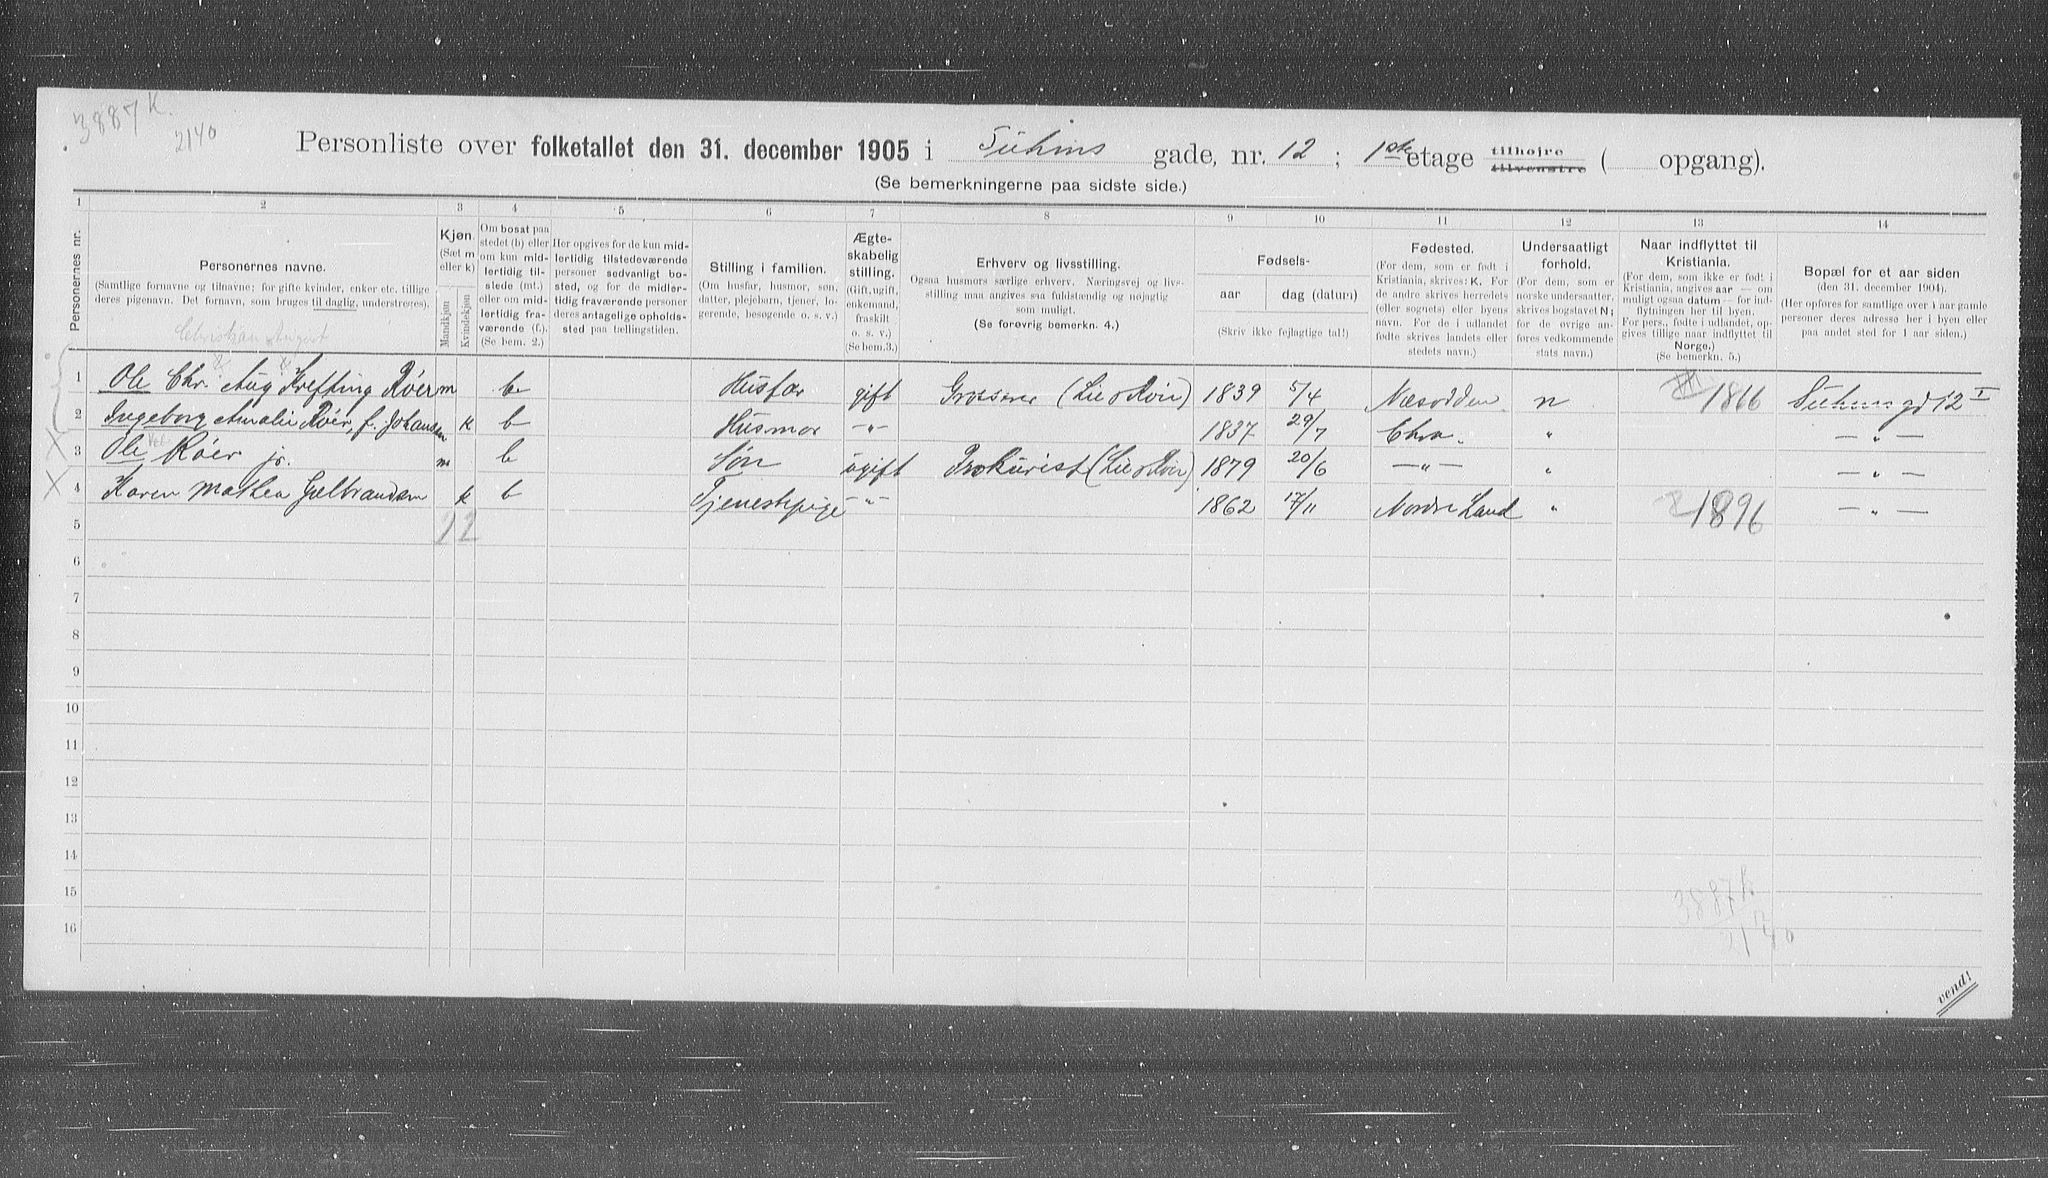 3887 K.
2140
Personliste over folketallet den 31. december 1905 i Suhms gade, nr. 12 ; 1ste etage tilhøjre tilvenstre ( opgang).
(Se bemerkningerne paa sidste side.)
1 2 3 4 5 6 7 8 9 10 11 12 13 14
Personernes nr.
Personernes navne.
(Samtlige fornavne og tilnavne; for gifte kvinder, enker etc. tillige
deres pigenavn. Det fornavn, som bruges til daglig, understreges).
Kjøn.
(Sæt m
eller k)
Mandkjøn
Kvindekjøn
Om bosat paa
stedet (b) eller
om kun mid-
lertidig til-
stede (mt.)
eller om mid-
lertidig fra-
værende (f.).
(Se bem. 2.)
Her opgives for de kun mid-
lertidig tilstedeværende
personer sedvanligt bo-
sted, og for de midler-
tidig fraværende personer
deres antagelige opholds-
sted paa tællingstiden.
Stilling i familien.
(Om husfar, husmor, søn,
datter, plejebarn, tjener, lo-
gerende, besøgende o. s. v.)
Ægte-
skabelig
stilling.
(Gift, ugift,
enkemand,
fraskilt
o. s. v.)
(Se bem.3.)
Erhverv og livsstilling.
Ogsaa husmors særlige erhverv. Næringsvej og livs-
stilling maa angives saa fuldstændig og nøjagtig
som muligt.
(Se forøvrig bemerkn. 4.)
Fødsels-
aar
dag (datum)
(Skriv ikke fejlagtige tal!)
Fødested.
(For dem, som er født i
Kristiania, skrives: K. For
de andre skrives herredets
(eller sognets) eller byens
navn. For de i udlandet
fødte skrives landets eller
stedets navn.)
Undersaatligt
forhold.
(For dem, som er
norske undersaatter,
skrives bogstavet N;
for de øvrige an-
føres vedkommende
stats navn.)
Naar indflyttet til
Kristiania.
(For dem, som ikke er født i
Kristiania, angives aar — om
muligt ogsaa datum — for ind-
flytningen her til byen.
For pers., fødte i udlandet, op-
gives tillige naar indflyttet til
Norge.)
(Se bemerkn. 5.)
Bopæl for et aar siden
(den 31. december 1904).
(Her opføres for samtlige over 1 aar gamle
personer deres adresse her i byen eller
paa andet sted for 1 aar siden.)
Christian August
1 Ole Chr. Aug. Krefting Røer m b Husfar gift Grosserer (Lie & Røer) 1839 5/4 Næsodden n 1866 Suhms gd 12 I
2 Ingeborg Amalie Røer, f. Johansen k b Husmor -„- 1837 29/7 Chra. „ — „ —
3 Ole Røer jr. m b Søn ugift Prokurist (Lie & Røer) 1879 20/6 —„— „ — „ —
4 Karen Mathea Gulbrandsen k b Tjenestepige -„- 1862 17/11 Nordre Land „ 1896 — „ —
5 1 2
6
7
8
9
10
11
12
13
14
15
16
3887 K
2140
vend!